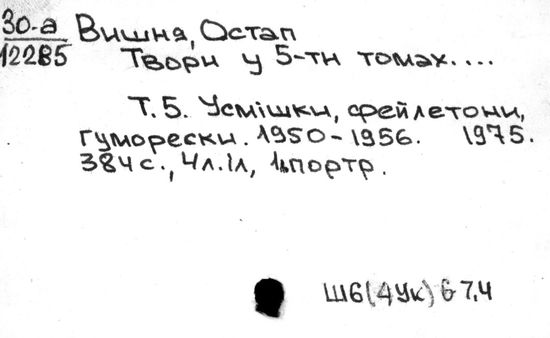 Зо-а Вишня, Остап
12285 Твори у 5-ти томах....
Т.5. Усмішки, фейлетони,
гуморески. 1950-1956. 1975.
384с., 4л.іл, 1портр.
Ш6(4Ук) 6 7,4